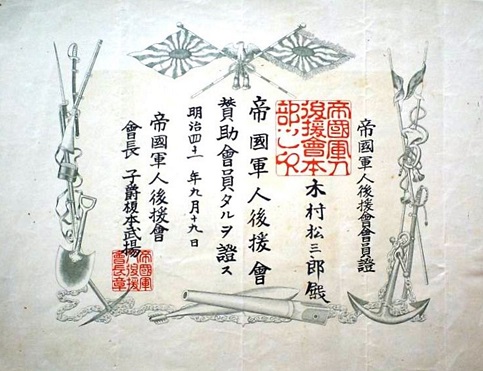 帝國軍人後援會會員證
木村松三郎殿
帝國軍人後援會
贊助會員タルヲ證ス
明治四十一年九月十九日
帝國軍人後援會
會長 子爵榎本武揚
帝國軍人
後援會本
部之印
帝國軍
人後援
會長章